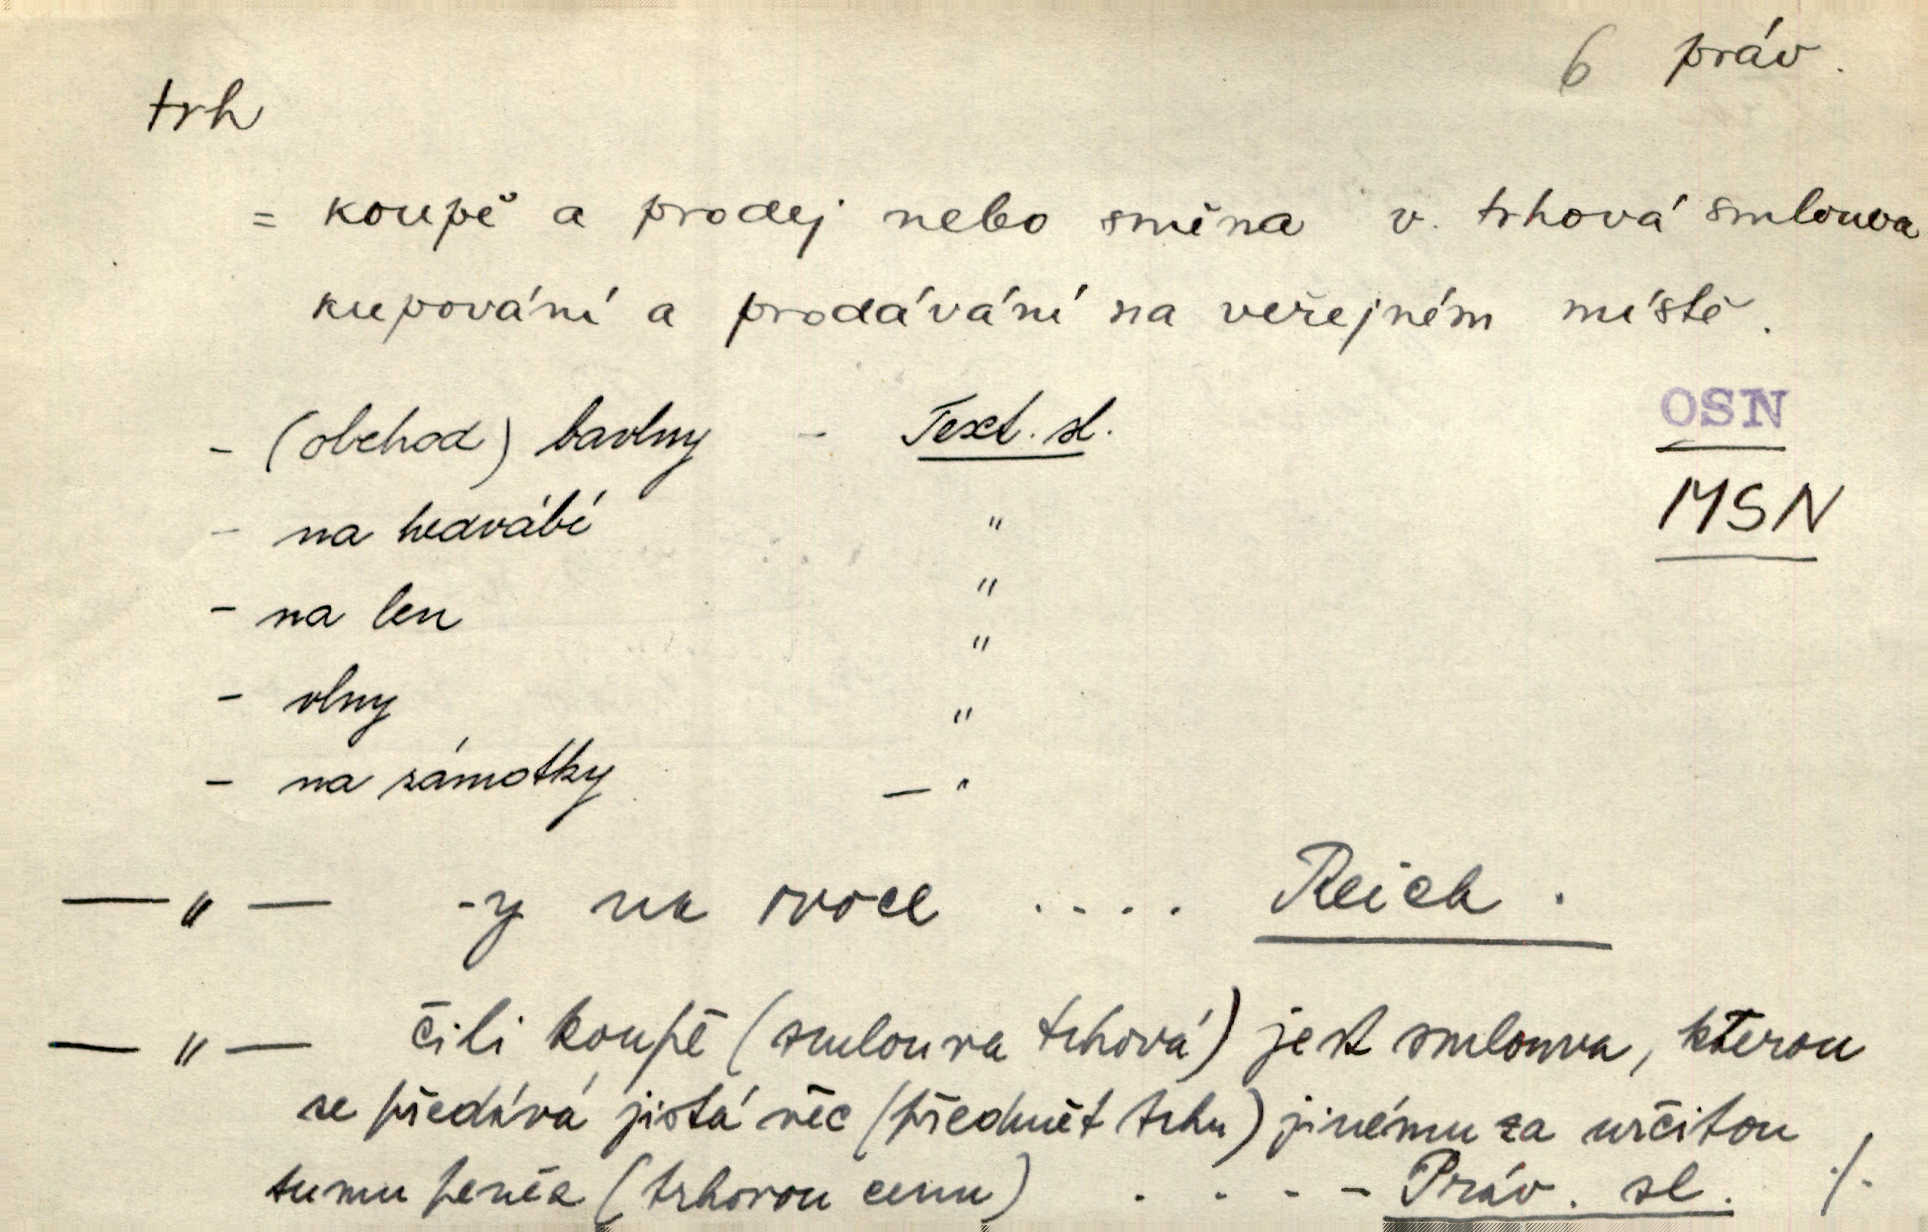 6 práv.
trh
= koupě a prodej nebo směna v. trhová smlouva
kupování a prodávání na veřejném místě.
OSN
- (obchod) bavlny - Text. sl.
MSN
- na hedvábí "
- na len "
- vlny "
"
- na zámotky — "
— " — -y na ovoce .... Reich.
— " — čili koupě (smlouva trhová) jest smlouva, kterou
se předává jistá věc (předmět trhu) jinému za určitou
sumu peněz (trhovou cenu) . . - - Práv. sl. ./.